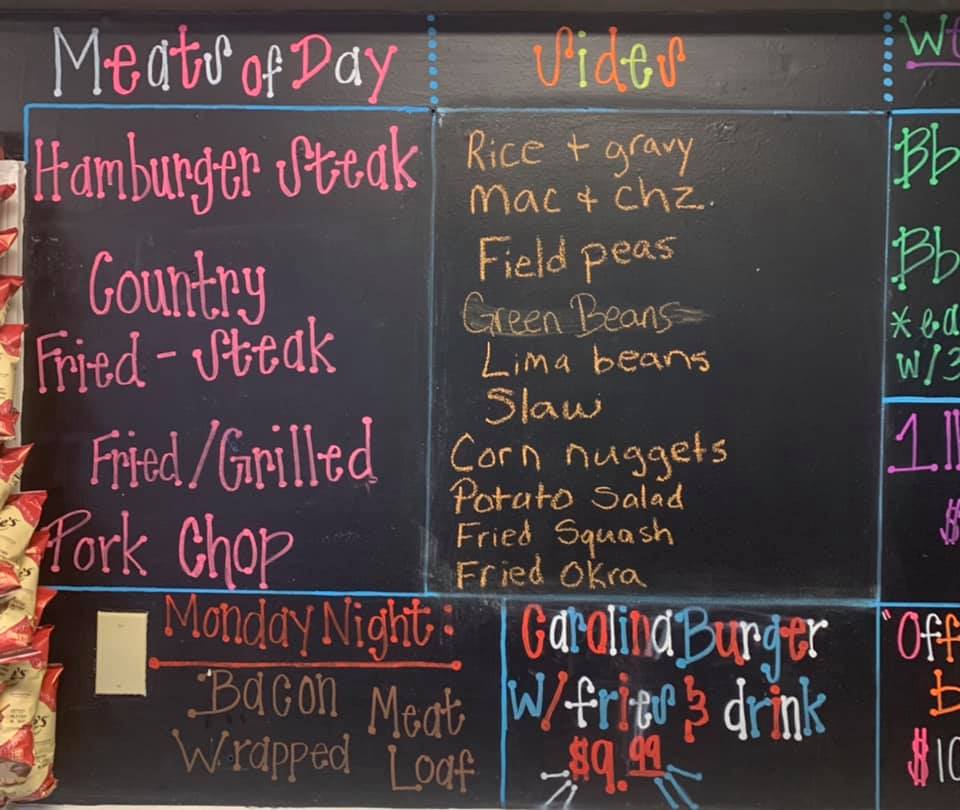 Meats of Day
Hamburger Steak
Country
Fried - Steak
Fried/Grilled
Pork Chop
Sides
Rice + gravy
Mac + chz.
Field peas
Green Beans
Lima beans
Slaw
Corn nuggets
Potato Salad
Fried Squash
Fried Okra
Bb
Bb
w/3
$
Monday Night:
Bacon
Wrapped
Meat
Loaf
Carolina Burger
w/fries & drink
$9.99
"Off
b
$10